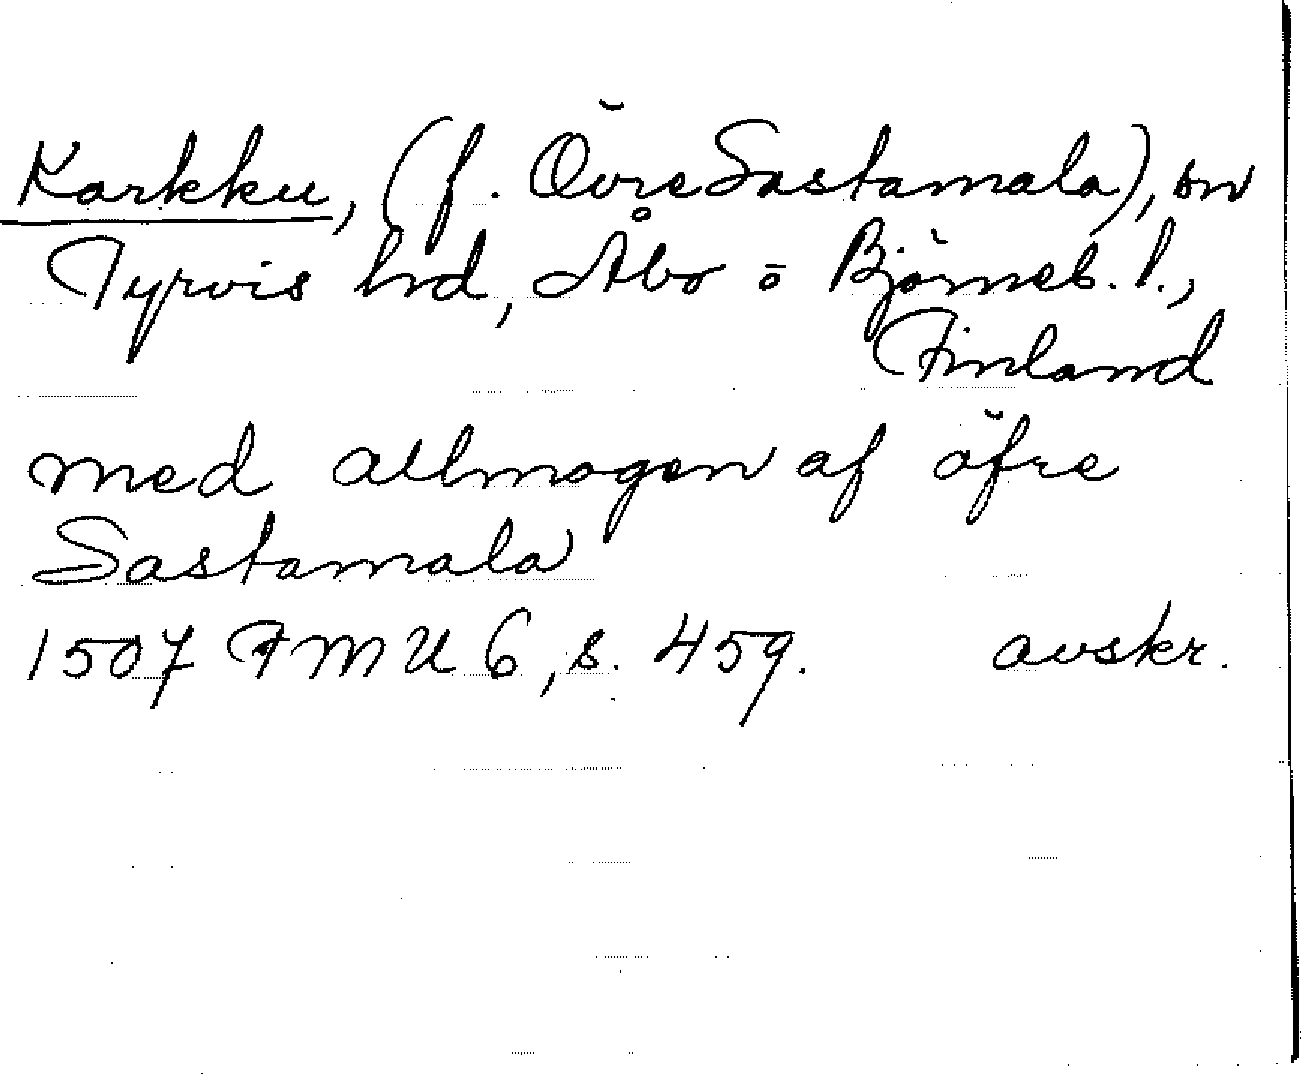 Karkku, (f. Övre Sastamala), sn
Tyrvis hd, Åbo o Björneb. l.,
Finland
med allmogen af öfre
Sastamala
1507 FMU 6, s. 459. avskr.